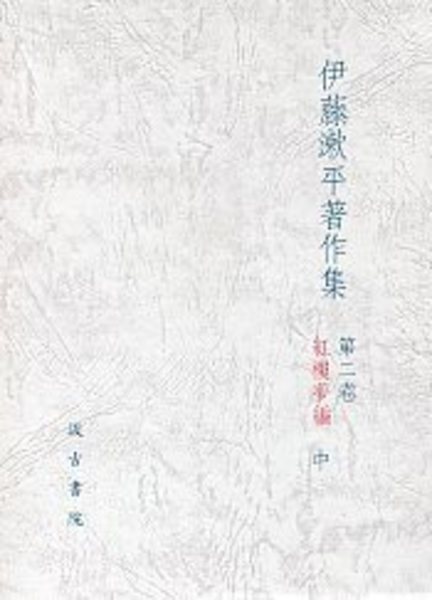 伊藤漱平著作集
第二巻
紅樓夢編
中
汲古書院